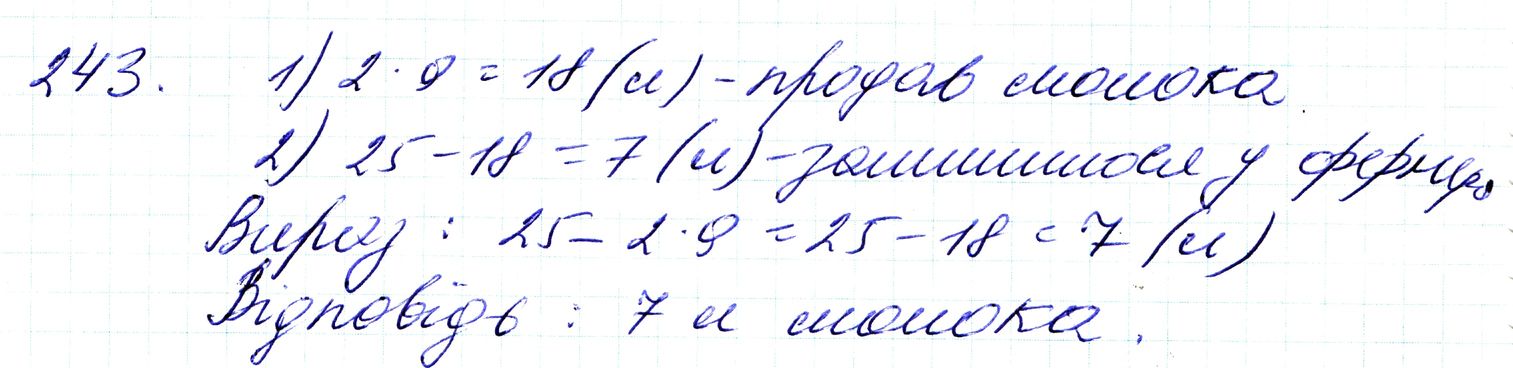 243. 1) 2 · 9 = 18 (л) - продав молока
2) 25 - 18 = 7 (л) - залишилося у ферм.
Вираз : 25 - 2 · 9 = 25 - 18 = 7 (л)
Відповідь : 7 л молока.